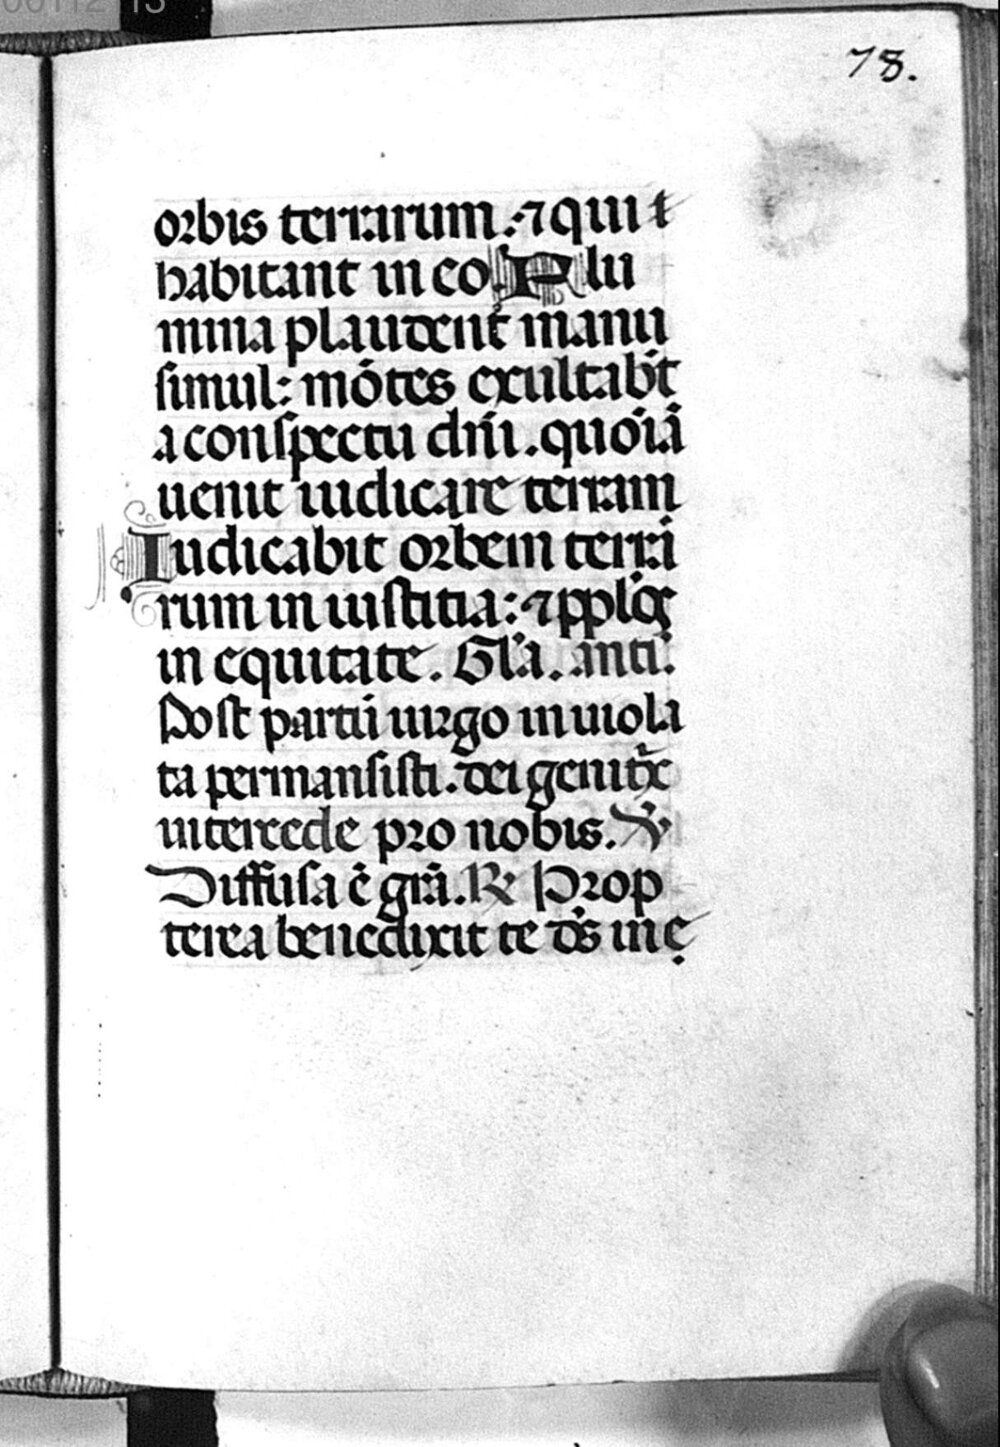 00112 13
78.
orbis terrarum: ⁊ qui
habitant in eo. Flu
mina plaudent manu
simul: mōtes exultabt̄
a conspectu dn̄i. quoniā
uenit iudicare terram
Iudicabit orbem terra
rum in iustitia: ⁊ pplōs
in equitate. Gl̄a. anti.
Post partū uirgo inuiola
ta permansisti. dei genitx̄
intercede pro nobis. ℣
Diffusa ē grā. ℞ Prop
terea benedixit te dēs in ę